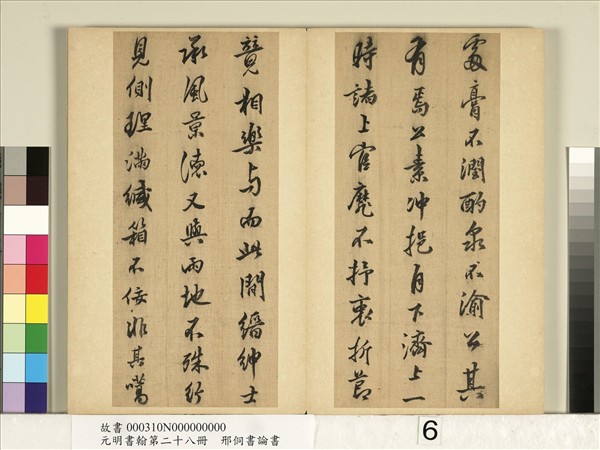 處膏不潤酌泉不渝公其
有焉公素冲挹自下濟上一
時諸上官靡不抒衷折節
競相樂与而此間縉紳士
承風景德又與兩地不殊行
見側理滿緘箱不佞非其嚆
故書 000310N000000000
元明書翰第二十八冊　邢侗書論書
6